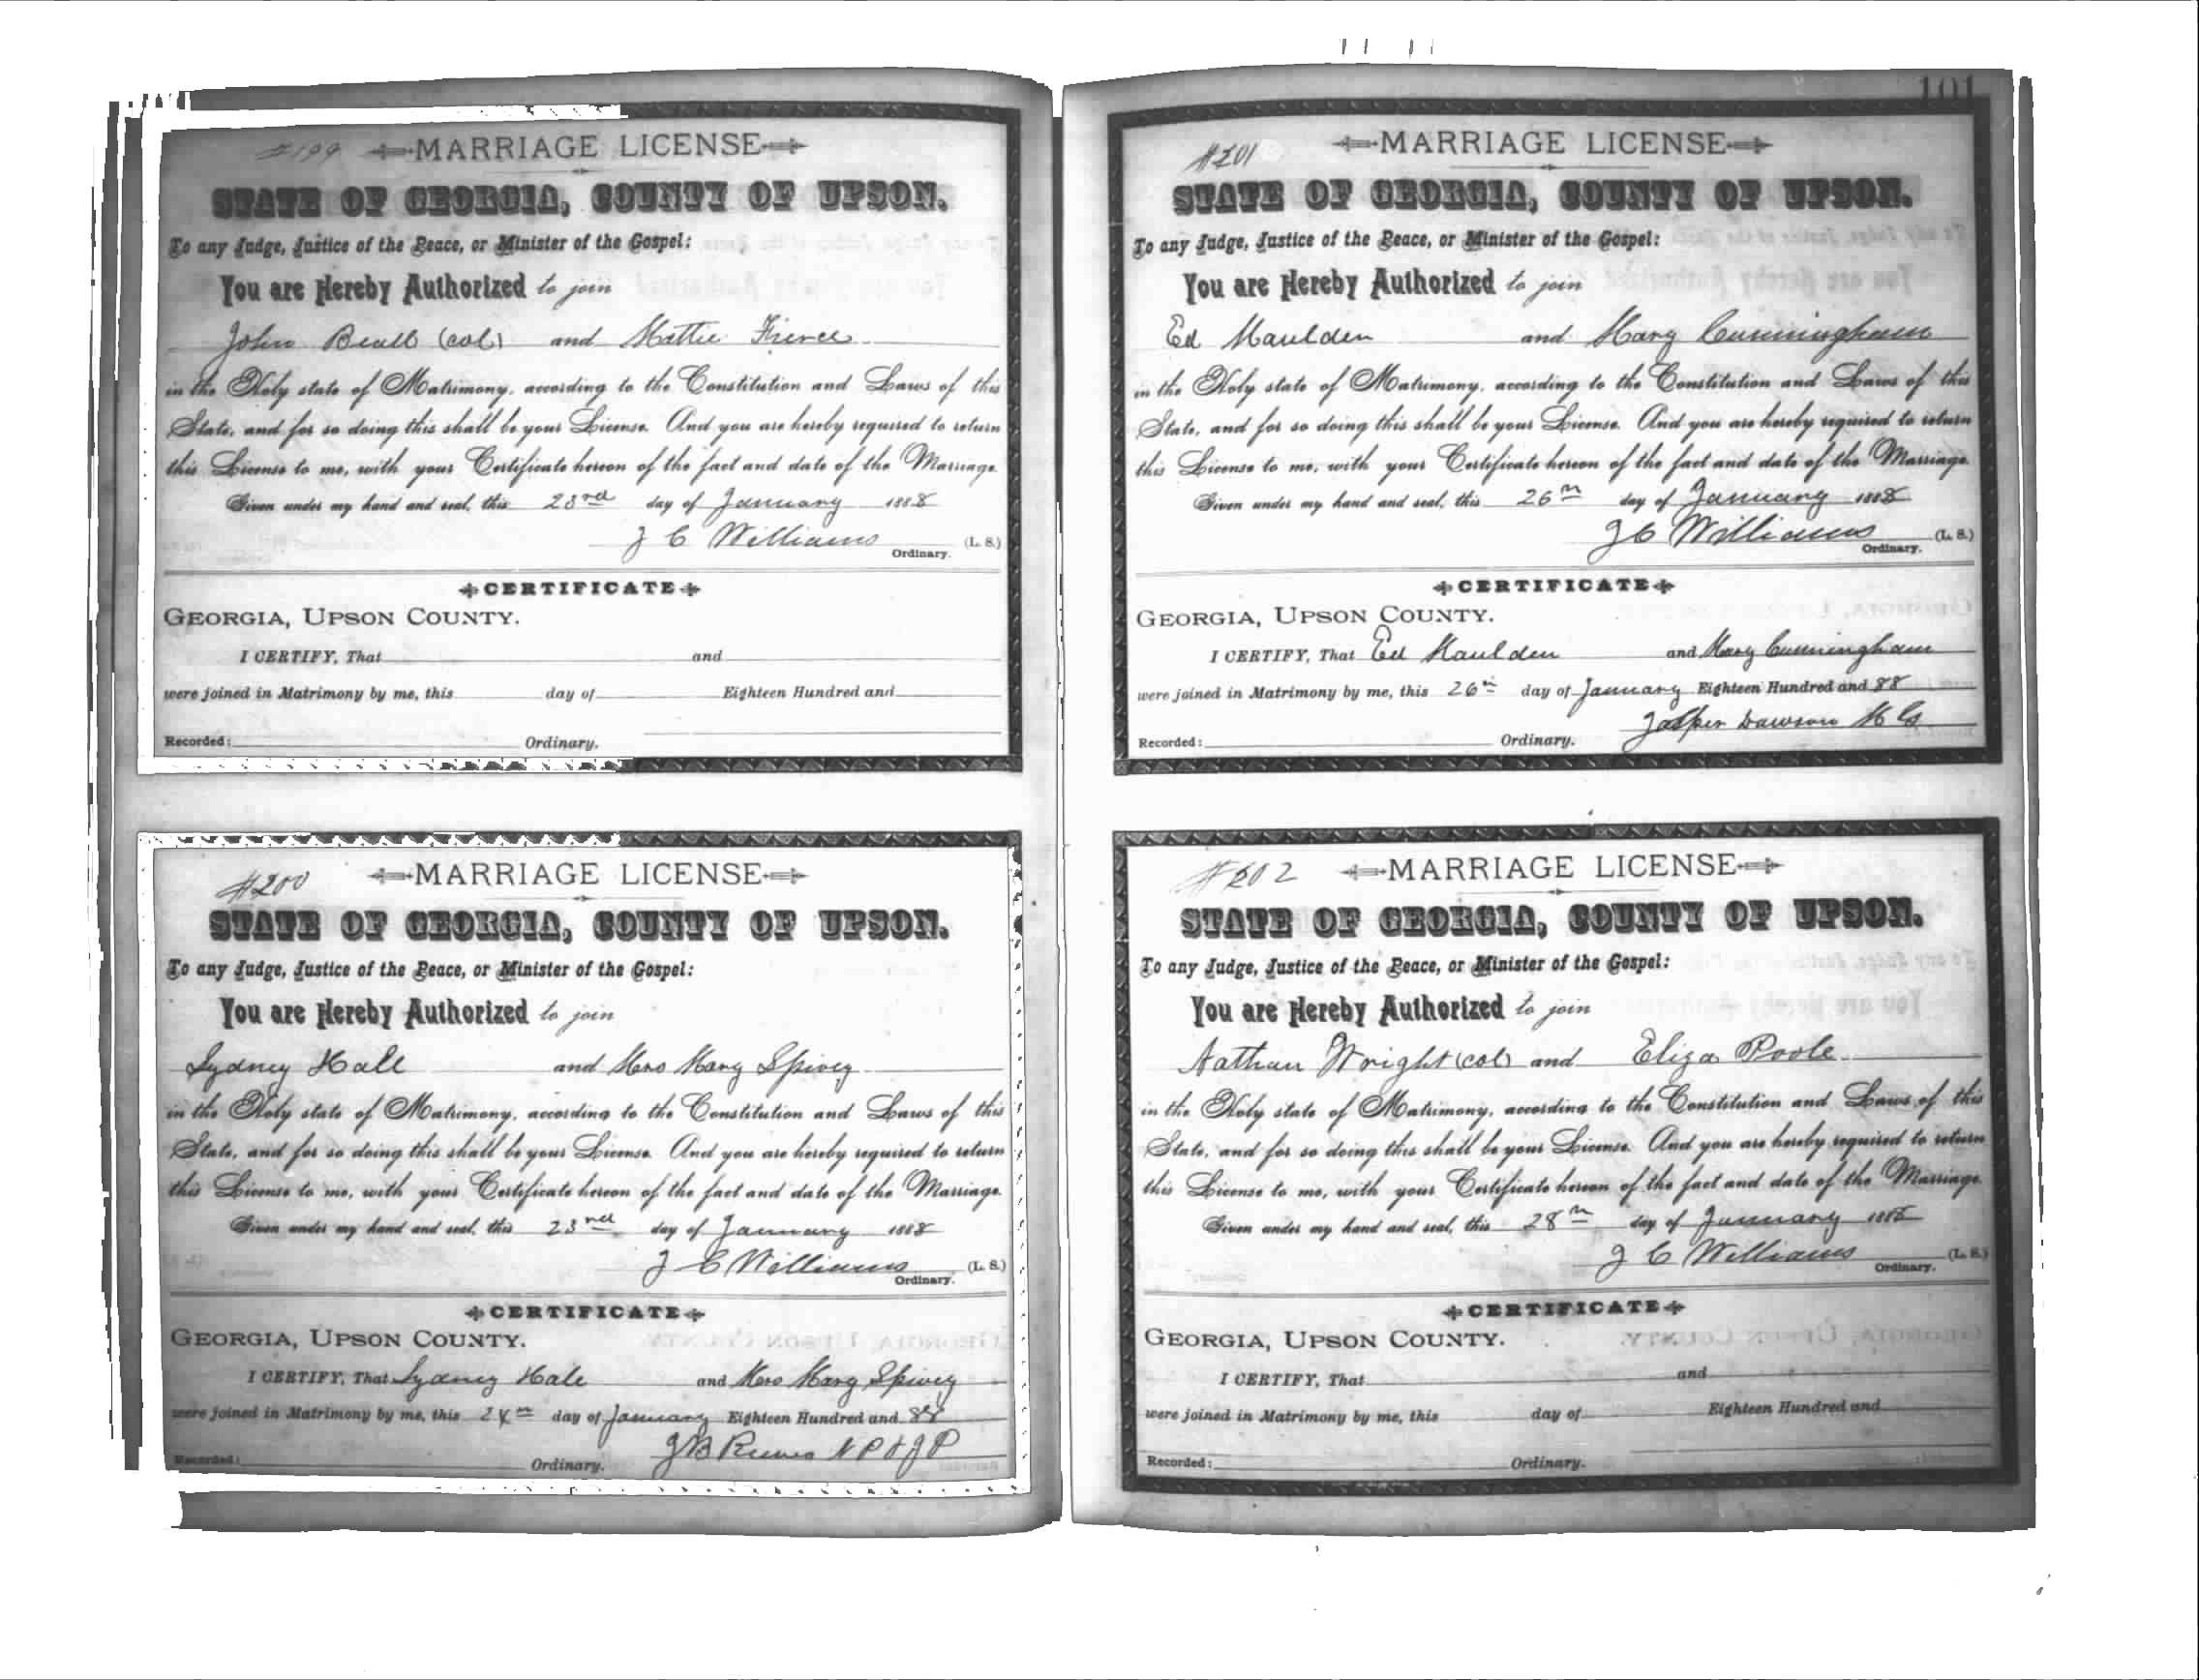 101
#199 MARRIAGE LICENSE
STATE OF GEORGIA, COUNTY OF UPSON.
To any Judge, Justice of the Peace, or Minister of the Gospel:
You are Hereby Authorized to join
John Beall (col) and Mattie
in the Holy state of Matrimony, according to the Constitution and Laws of this
State, and for so doing this shall be your License. And you are hereby required to return
this License to me, with your Certificate hereon of the fact and date of the Marriage.
Given under my hand and seal, this 23rd day of January 1888
J C Williams (L. S.)
Ordinary.
CERTIFICATE
GEORGIA, UPSON COUNTY.
I CERTIFY, That and
were joined in Matrimony by me, this day of Eighteen Hundred and
Recorded: Ordinary.
#200 MARRIAGE LICENSE
STATE OF GEORGIA, COUNTY OF UPSON.
To any Judge, Justice of the Peace, or Minister of the Gospel:
You are Hereby Authorized to join
Sydney Hale and Mrs Mary Spivey
in the Holy state of Matrimony, according to the Constitution and Laws of this
State, and for so doing this shall be your License. And you are hereby required to return
this License to me, with your Certificate hereon of the fact and date of the Marriage.
Given under my hand and seal, this 23rd day of January 1888
J C Williams (L. S.)
Ordinary.
CERTIFICATE
GEORGIA, UPSON COUNTY.
I CERTIFY, That Sydney Hale and Mrs Mary Spivey
were joined in Matrimony by me, this 24th day of January Eighteen Hundred and 88
J B Reeves N P & J P
Recorded: Ordinary.
#201 MARRIAGE LICENSE
STATE OF GEORGIA, COUNTY OF UPSON.
To any Judge, Justice of the Peace, or Minister of the Gospel:
You are Hereby Authorized to join
Ed Maulden and Mary Cunningham
in the Holy state of Matrimony, according to the Constitution and Laws of this
State, and for so doing this shall be your License. And you are hereby required to return
this License to me, with your Certificate hereon of the fact and date of the Marriage.
Given under my hand and seal, this 26th day of January 1888
J C Williams (L. S.)
Ordinary.
CERTIFICATE
GEORGIA, UPSON COUNTY.
I CERTIFY, That Ed Maulden and Mary Cunningham
were joined in Matrimony by me, this 26th day of January Eighteen Hundred and 88
Jasper Dawson M G
Recorded: Ordinary.
#202 MARRIAGE LICENSE
STATE OF GEORGIA, COUNTY OF UPSON.
To any Judge, Justice of the Peace, or Minister of the Gospel:
You are Hereby Authorized to join
Nathan Wright (col) and Eliza Poole
in the Holy state of Matrimony, according to the Constitution and Laws of this
State, and for so doing this shall be your License. And you are hereby required to return
this License to me, with your Certificate hereon of the fact and date of the Marriage.
Given under my hand and seal, this 28th day of January 1888
J C Williams (L. S.)
Ordinary.
CERTIFICATE
GEORGIA, UPSON COUNTY.
I CERTIFY, That and
were joined in Matrimony by me, this day of Eighteen Hundred and
Recorded: Ordinary.